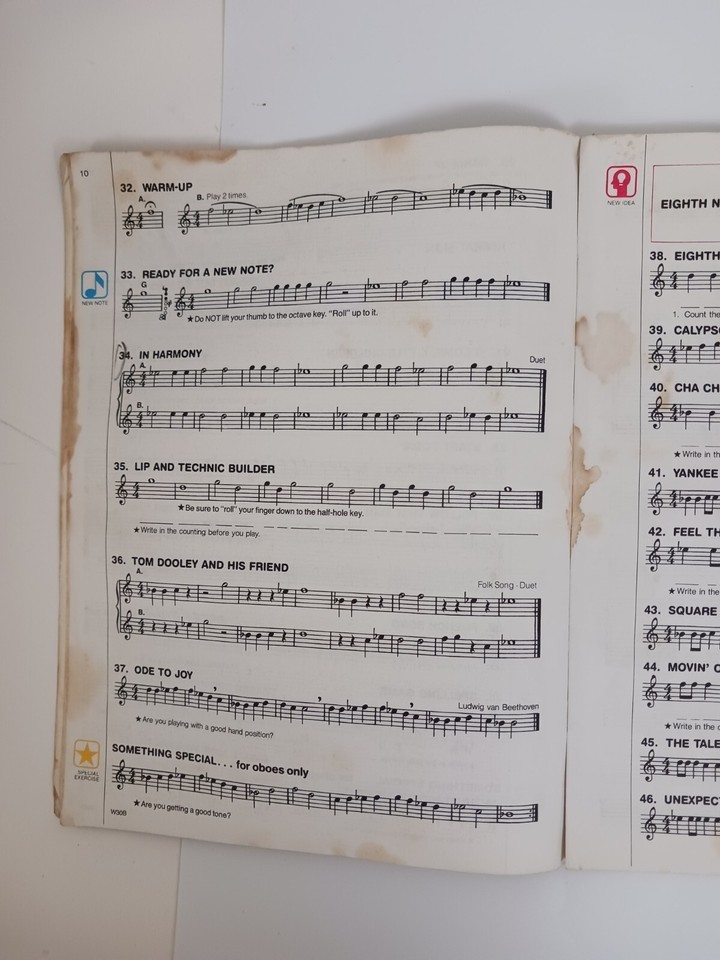 10
32. WARM-UP
A.
B. Play 2 times.
33. READY FOR A NEW NOTE?
G
NEW NOTE
★Do NOT lift your thumb to the octave key. "Roll" up to it.
34. IN HARMONY
Duet
A.
B.
35. LIP AND TECHNIC BUILDER
★Be sure to "roll" your finger down to the half-hole key.
★Write in the counting before you play.
36. TOM DOOLEY AND HIS FRIEND
Folk Song - Duet
A.
B.
37. ODE TO JOY
Ludwig van Beethoven
★Are you playing with a good hand position?
SOMETHING SPECIAL... for oboes only
SPECIAL
EXERCISE
★Are you getting a good tone?
W30B
NEW IDEA
EIGHTH N
38. EIGHTH
1. Count the
39. CALYPS
40. CHA CH
★Write in th
41. YANKEE
42. FEEL TH
★Write in the
43. SQUARE
44. MOVIN'
★Write in the
45. THE TALE
46. UNEXPEC